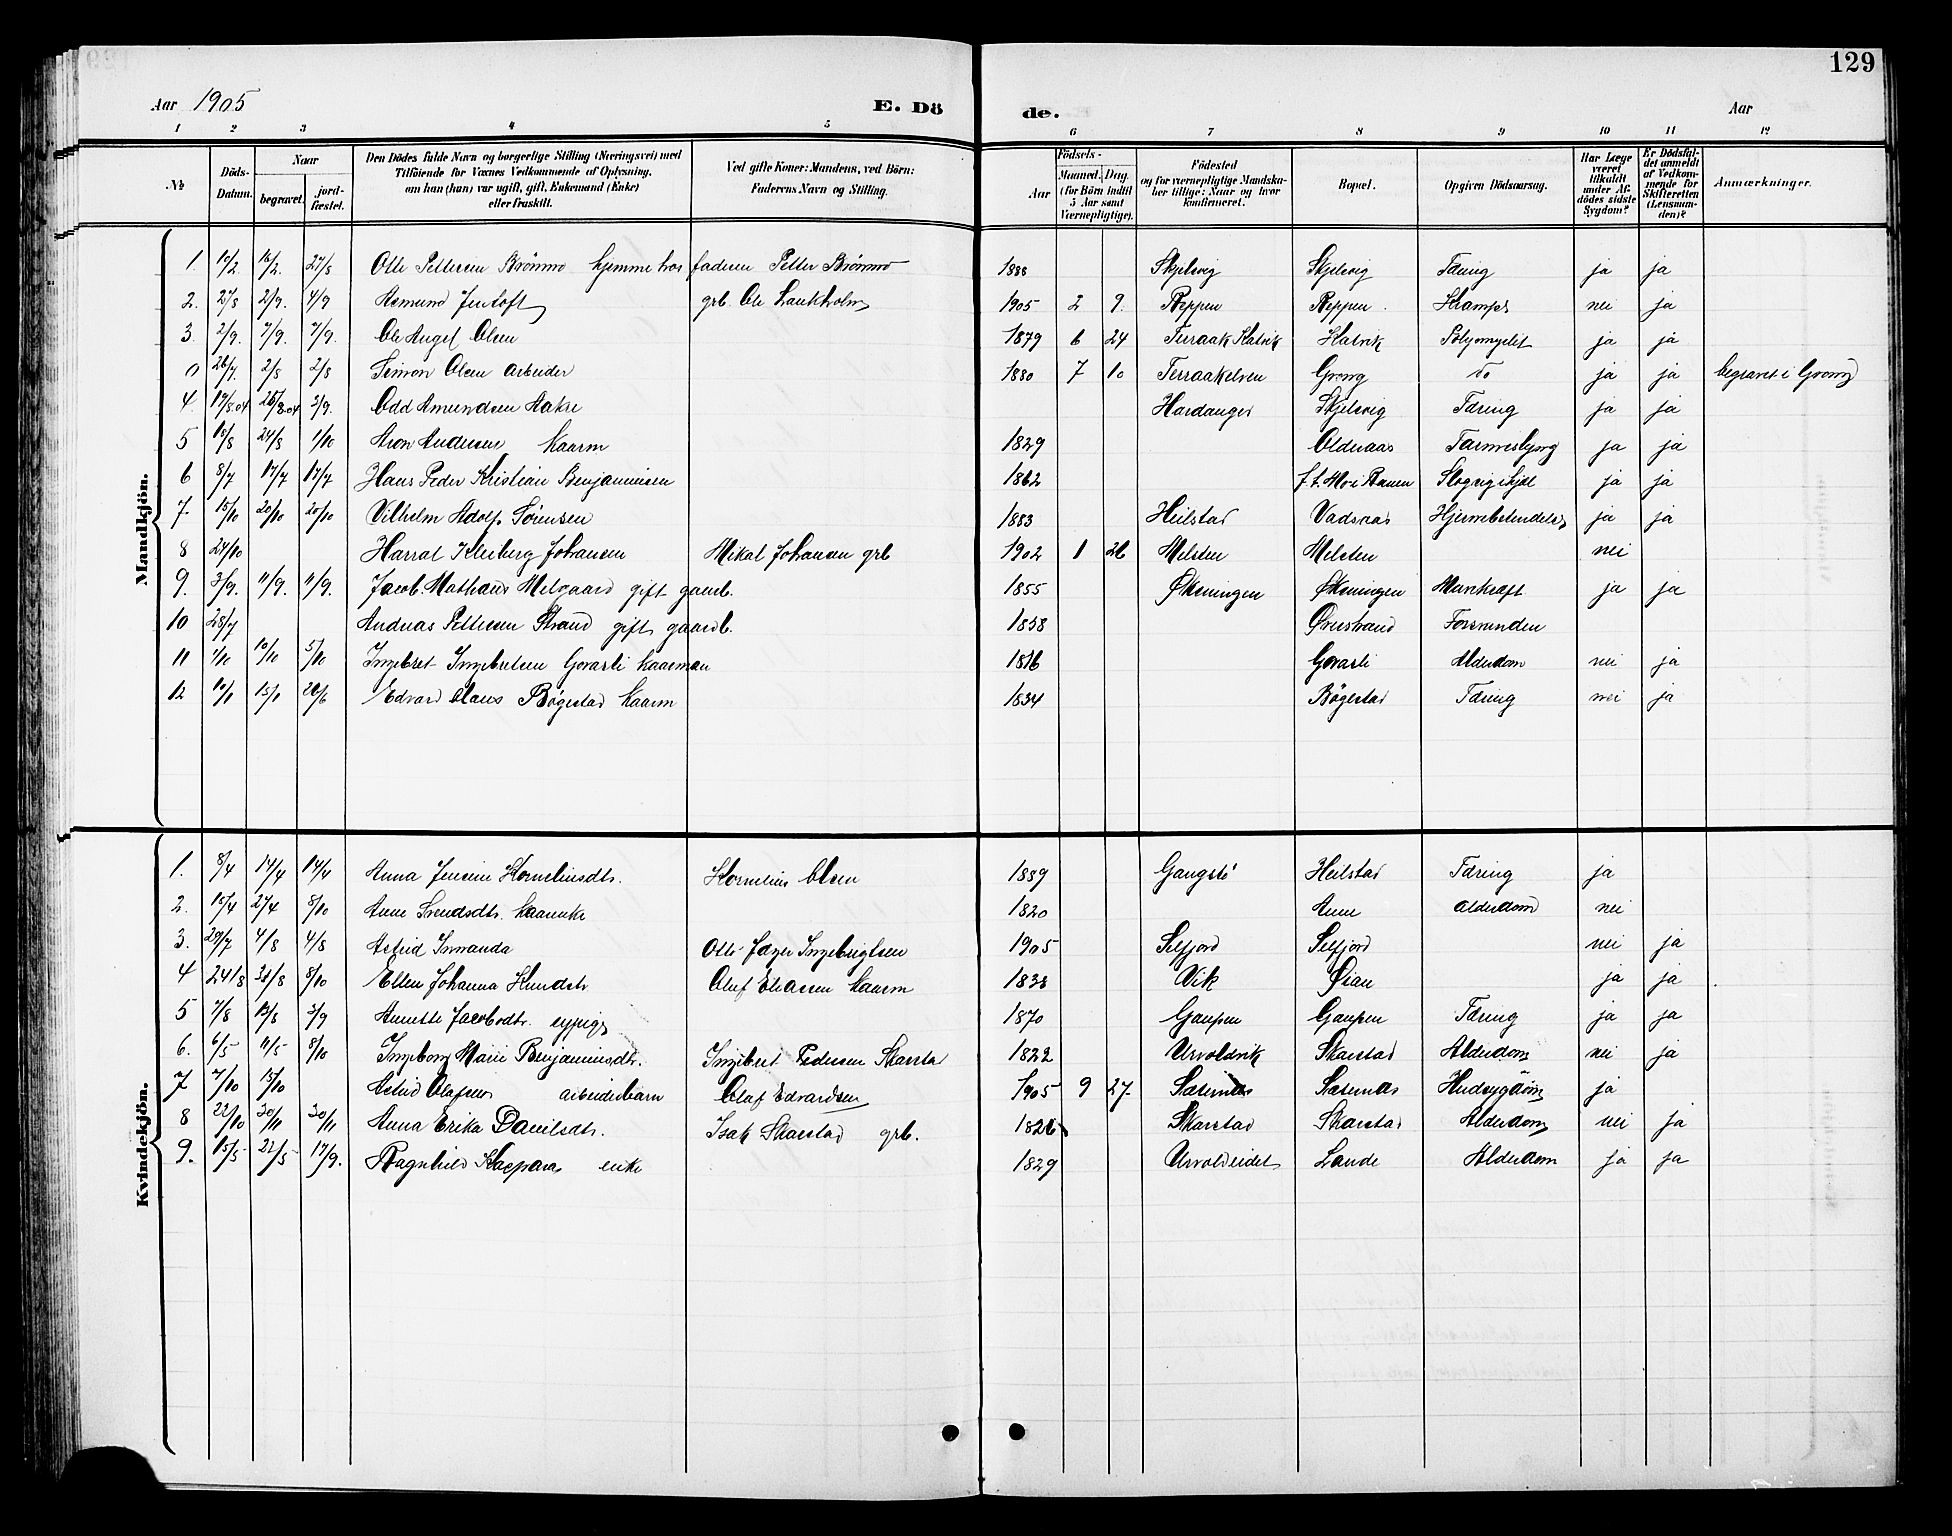 129
Aar 1905 E. Dö de. Aar
1 2 3 4 5 6 7 8 9 10 11 12
№
Döds-Datum.
Naar
begravet.
jord-fæstet.
Den Dödes fulde Navn og borgerlige Stilling (Næringsvei) med
Tilföiende for Voxnes Vedkommende af Oplysning,
om han (hun) var ugift, gift, Enkemand (Enke)
eller fraskilt.
Ved gifte Koner: Mandens, ved Börn:
Faderens Navn og Stilling.
Födsels-
Aar
Maaned. Dag.
(for Börn indtil
5 Aar samt
Værnepligtige).
Födested
og for værnepligtige Mandska-
ber tillige: Naar og hvor
konfirmeret.
Bopæl.
Opgiven Dödsaarsag.
Har Læge
været
tilkaldt
under Af-
dödes sidste
Sygdom?
Er Dödsfal-
det anmeldt
af Vedkom-
mende for
Skifteretten
(Lensman-
den)?
Anmærkninger.
Mandkjön.
1. 27/8 Otto Pettersen Brönmo hjemme hos faderen Petter Brönmo 1888 Skjelvig Skjelvig Tæring ja ja
2. 27/8 2/9. 4/9 Asmund Jentoft grb. Ole Laukholm 1905 2 9. Reppen Reppen. Krampe nei ja
3. 2/9. 7/9. 7/9. Ole Angel Olsen 1879 6 24 Terraak Kalvik Kalvik ja ja
0 26/7. 2/8 2/8 Simon Olsen arbeider 1880 7 10 Terraakelven Grong do ja ja begravet i Grong
4. 3/9. Odd Amundsen Aakre Hardanger Skjelvig Tæring ja ja
5 18/8 24/8 1/10 Aron Andersen kaarm 1829 Oldernaas ja ja
6 8/7 17/7 17/7 Hans Peder Kristian Benjaminsen 1862 ja ja
7. 15/10 20/10 20/10 Vilhelm Adolf Sörensen 1883 Heilstad Vadsaas ja ja
8 24/10 Harral Kleiberg Johansen Mikal Johansen grb 1902 1 26 Melsten Melsten nei
9. 3/9. 11/9. 11/9. Jacob. Mathæus Melgaard gift gaardb. 1855 Øksningen Øksningen ja ja
10 28/7 Andreas Pettersen Strand gift gaardb. 1858 Ørestrand Forsvunden
11 1/10 10/10 5/10 Ingebret Ingebretsen Gorasli kaarman 1816 Gorasli Alderdom nei ja
12 10/1 15/1 26/6 Edvard Claus Bögestad kaarm 1834 Bögestad Tæring nei ja
Kvindekjön.
1. 8/4 14/4 14/4 Anna Jensine Korneliusdtr. Kornelius Olsen 1889 Gangstö Heilstad Tæring ja
2. 15/4 27/4 8/10 Anne Svendsdtr. kaarenke 1820 Aune Alderdom nei
3. 29/7 4/8 4/8 Astrid Irmanda Otto Jæger Ingebrigtsen 1905 Selfjord Selfjord nei ja
4 24/8 31/8 8/10 Ellen Johanna Oluf Eliassen kaarm 1838 Vik Øian ja ja
5 7/8 12/8 3/9 Annette Jacobsdtr. 1870 Gaupen Gaupen Tæring ja ja
6. 6/5 11/5 8/10 Ingeborg Marie Benjaminsdtr. Ingebret Pedersen Skarstad 1822 Urvoldvik Skarstad Alderdom nei ja
7 7/10 15/10 Astrid Olafsen arbeiderbarn Olaf Edvardsen 1905 9 27. Saternes Saternes Hudsygdom ja
8 22/10 30/11 30/11 Anna Erika Danilsdtr. Isak Skarstad grb. 1826 Skarstad Skarstad Alderdom nei ja
9. 15/5 22/5 17/9. Ragnhild Kaspara enke 1829 Urvoldeidet Lande Alderdom ja ja